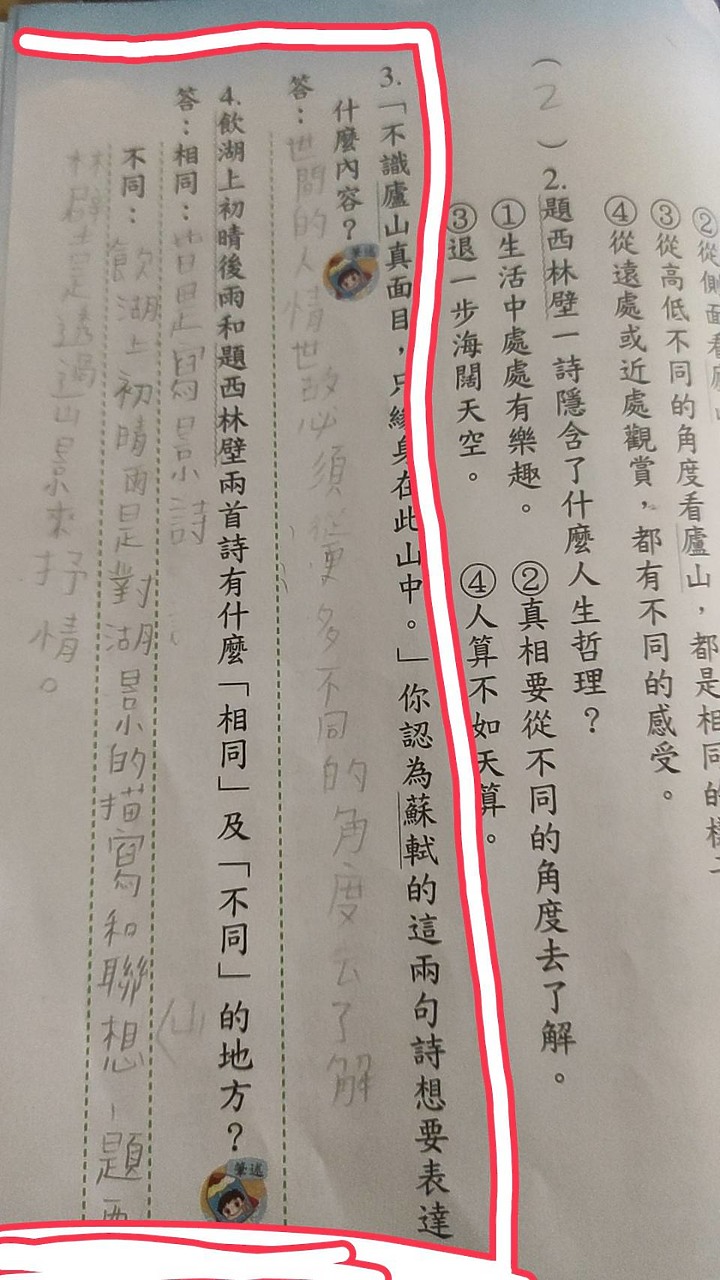 ②從側面看廬山，都是相同的樣
③從高低不同的角度看廬山，
④從遠處或近處觀賞，都有不同的感受。
（2）2.題西林壁一詩隱含了什麼人生哲理？
①生活中處處有樂趣。 ②真相要從不同的角度去了解。
③退一步海闊天空。 ④人算不如天算。
3.「不識廬山真面目，只緣身在此山中。」你認為蘇軾的這兩句詩想要表達
什麼內容？ 筆述
答：世間的人情世故必須從更多不同的角度去了解
4.飲湖上初晴後雨和題西林壁兩首詩有什麼「相同」及「不同」的地方？ 筆述
答：相同：皆是寫景詩
不同：飲湖上初晴雨是對湖景的描寫和聯想，題西
林壁是透過山景來抒情。